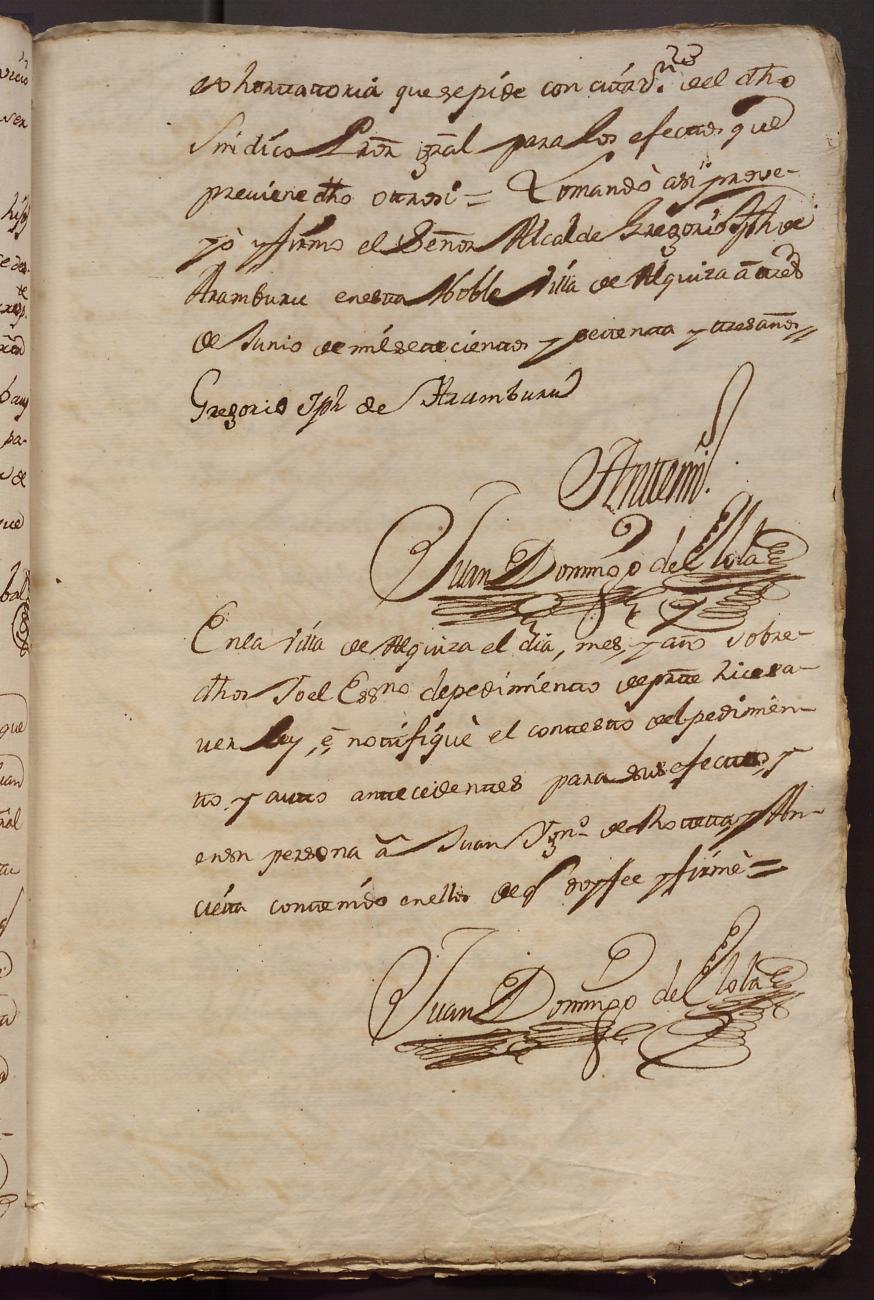 23
exhortatoria que se pide con citaz.on del dho
Sindico Pròr gral para los efectos que
previene dho otrosi = Lo mandò asi prove-
yò y firmo el Señor Alcalde Gregorio Jph de
Aramburu en esta Noble Villa de Alquiza à tres
de Junio de mil setecientos y setenta y tres años
Gregorio Jph de Aramburu
Antemi
Juan Domingo de Elola
En la Villa de Alquiza el dia, mes, y año sobre-
dhos Yo el Essno de pedimiento de parte hice sa-
ver ley, è notifiquè el contesto del pedimien-
to y auto antecedentes para sus efectos, y
en su persona à Juan Ygn.o de Rotetta y An-
cieta contenido en ellos de q doy fee y firmè =
Juan Domingo de Elola